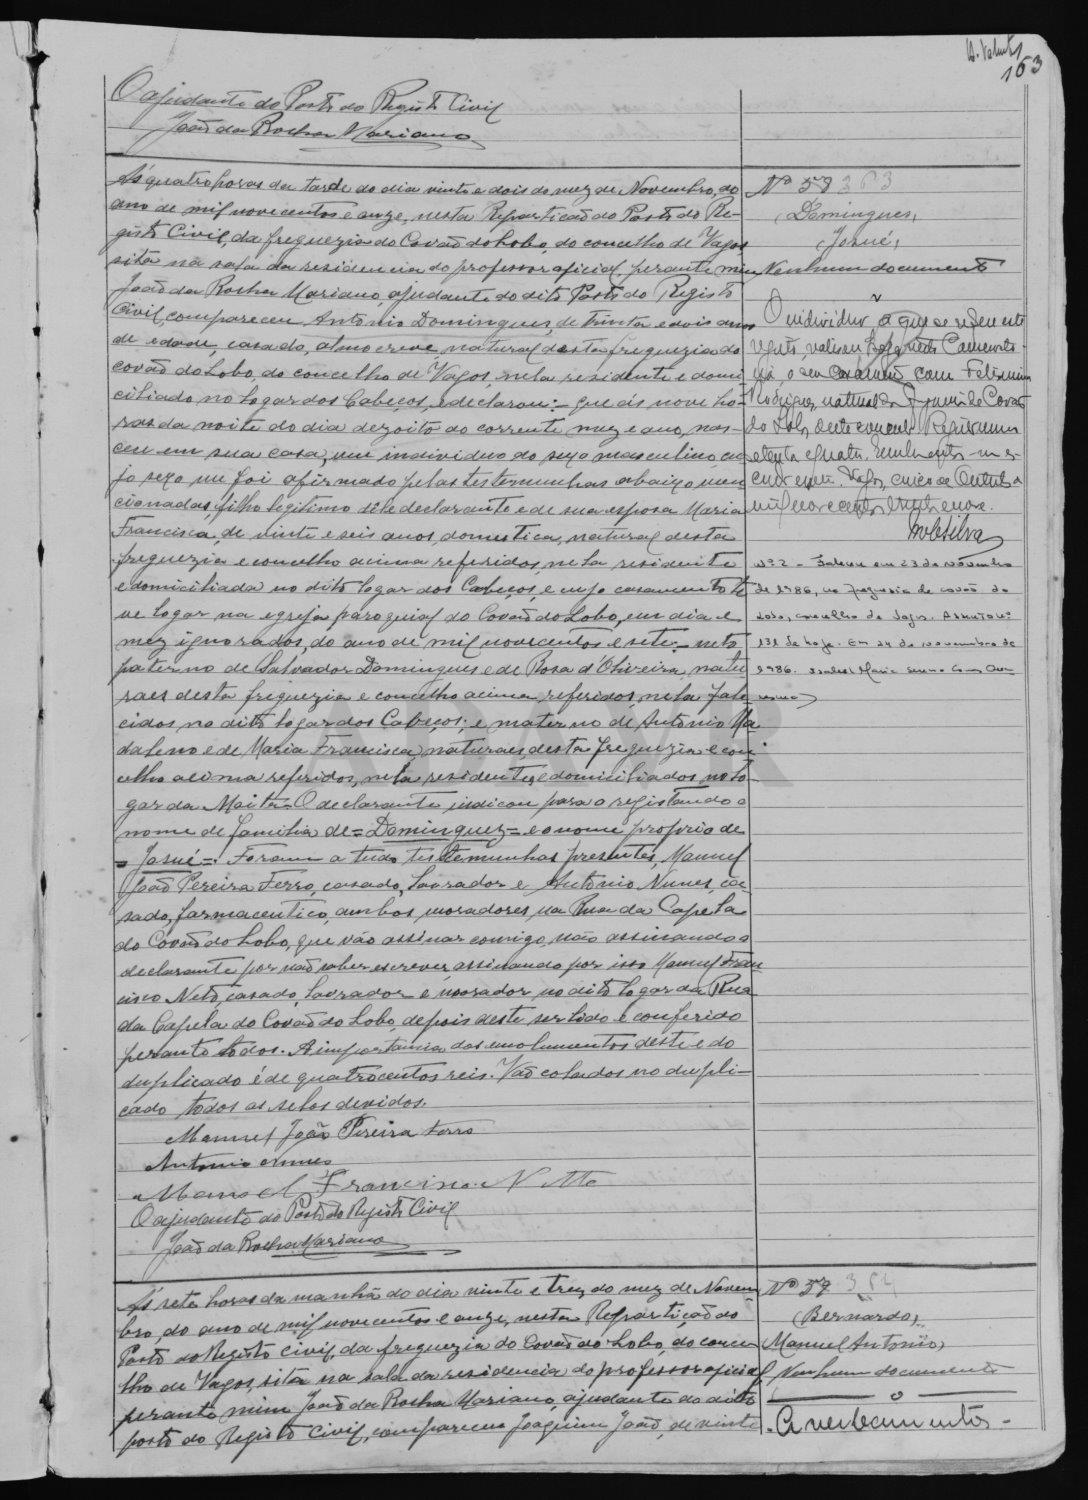 163
O ajudante do Posto do Registo Civil
João da Rocha Mariano
Ás quatro horas da tarde do dia vinte e dois do mez de Novembro, do
ano de mil novecentos e onze, nesta Repartição do Posto do Re-
gisto Civil, da freguezia do Covão do Lobo, do concelho de Vagos,
sita na sala da residencia do professor oficial, perante mim
João da Rocha Mariano, ajudante do dito Posto do Registo
Civil, compareceu Antonio Domingues, de trinta e dois anos
de edade, casado, almocreve natural desta freguezia do
covão do Lobo, do concelho de Vagos, nela residente e domi-
ciliado no logar dos Cabeços, e declarou: - que ás nove ho-
ras da noite do dia dezoito do corrente mez e ano, nas-
ceu em sua casa, um individuo do sexo masculino, cu-
jo sexo me foi afirmado pelas testemunhas abaixo men
cionadas, filho legitimo dele declarante e de sua esposa Maria
Francisca, de vinte e seis anos, domestica, natural desta
freguezia e concelho acima referidos, nela residente
e domiciliada no dito logar dos Cabeços, e cujo casamento te
ve logar na egreja paroquial do Covão do Lobo, em dia e
mez ignorados, do ano de mil novecentos e sete, - neto
paterno de Salvador Domingues e de Rosa d'Oliveira, natu
raes desta freguezia e concelho acima referidos, nela fale
cidos no dito logar dos Cabeços; e materno de Antonio Ma
daleno e de Maria Francisca, naturaes, desta freguezia e con
celho acima referidos, nela residentes, e domiciliados no lo-
gar da Moita. O declarante indicou para o registando o
nome de familia de = Domingues = e o nome proprio de
= Josué =. Foram a tudo testemunhas presentes, Manuel
João Pereira Ferro, casado, lavrador e Antonio Nunes, ca-
sado, farmaceutico, ambos moradores, na Rua da Capela
do Covão do Lobo, que vão assinar comigo, não assinando o
declarante por não saber escrever assinando por isso Manuel Fran
cisco Neto, casado, lavrador e morador, no dito logar da Rua
da Capela do Covão do Lobo, depois deste ser lido e conferido
perante todos. A importancia dos emolumentos deste e do
duplicado é de quatrocentos reis. Vão colados no dupli-
cado todos os selos devidos.
Manuel João Pereira Ferro
Antonio Nunes
Manoel Francisco Netto
O ajudante do Posto do Registo Civil
João da Rocha Mariano
Nº 58 363
(Domingues)
(Josué)
Nenhum documento
O individuo a que se refere este
registo, realisou
o seu casamento com Felismina
Rodrigues, natural da freguesia do Covão
do Lobo, deste concelho. Registo numero
Vagos, cinco de Outubro
mil novecentos trinta e nove.
Nº 2 - Faleceu em 23 de Novembro
de 1986, na freguesia de covão do
lobo, concelho de Vagos. Assento nº
131 de hoje. Em 24 de novembro de
1986.
Ás sete horas da manhã do dia vinte e trez do mez de Novem-
bro, do ano de mil novecentos e onze, nesta Repartição do
Posto do Registo Civil, da freguezia do Covão do Lobo, do conce
lho de Vagos, sita na sala da residencia do professor oficial,
perante mim João da Rocha Mariano, ajudante do dito
posto do Registo Civil, compareceu Joaquim João, de vinte
Nº 59 364
(Bernardo)
Manuel Antonio)
Nenhum documento
- Averbamentos -